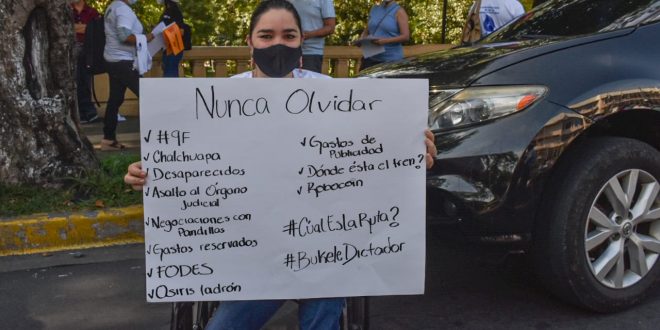 Nunca Olvidar
✓ #9F
✓ Chalchuapa
✓ Desaparecidos
✓ Asalto al Órgano
Judicial
✓ Negociaciones con
Pandillas
✓ Gastos reservados
✓ FODES
✓ Osiris ladrón
✓ Gastos de
Publicidad
✓ Dónde ésta el tren?
✓ Robocoin
#CuálEsLaRuta?
#BukeleDictador